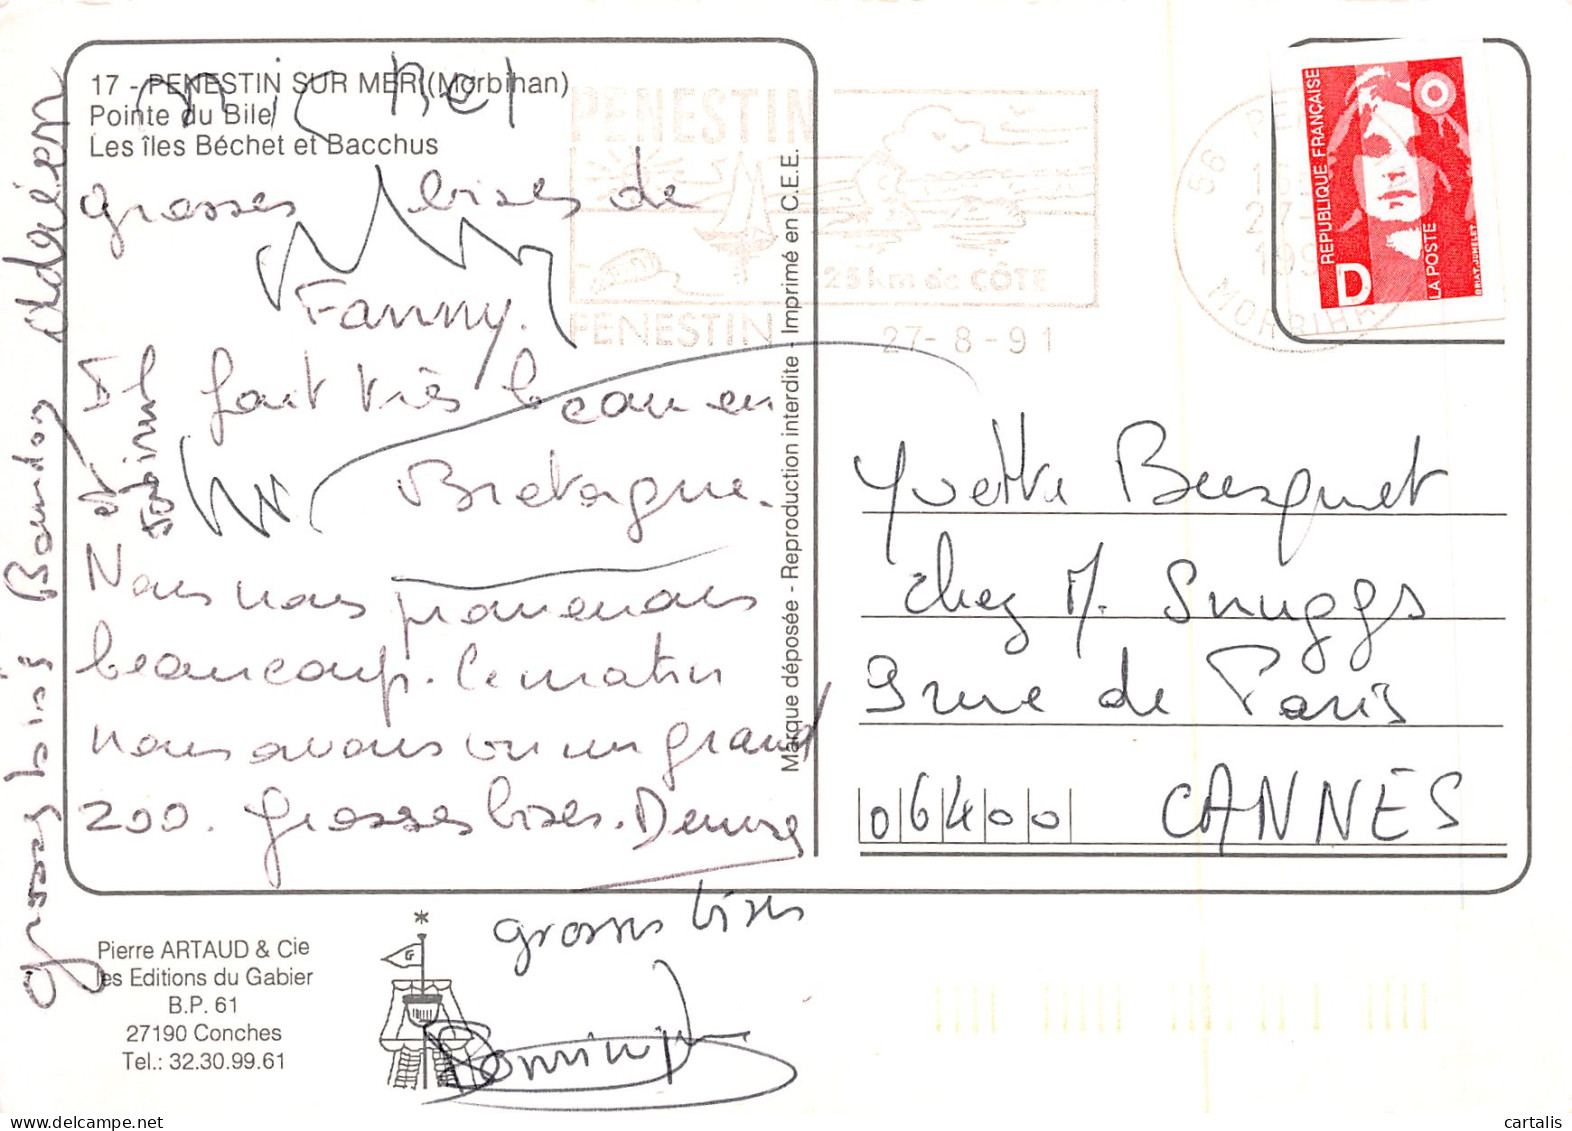 17 - PENESTIN SUR MER (Morbihan)
Pointe du Bile
Les îles Béchet et Bacchus
Michel
grosses bises de
Fanny.
Il fait très beau en
Bretagne.
Nous nous promenons
beaucoup. Ce matin
nous avons vu un grand
zoo. Grosses bises. Denise
grosses bisis
Adrien
et
grosses bises
Dominique
Marque déposée - Reproduction interdite - Imprimé en C.E.E.
PENESTIN
25 km de CÔTE
PENESTIN
27-8-91
56
MORBIHAN
RÉPUBLIQUE FRANÇAISE
D
LA POSTE
BRIAT.JUMELET
Yvette Busquet
chez M. Snuggs
9 rue de Paris
06400 CANNES
Pierre ARTAUD & Cie
les Editions du Gabier
B.P. 61
27190 Conches
Tel.: 32.30.99.61
cartalis